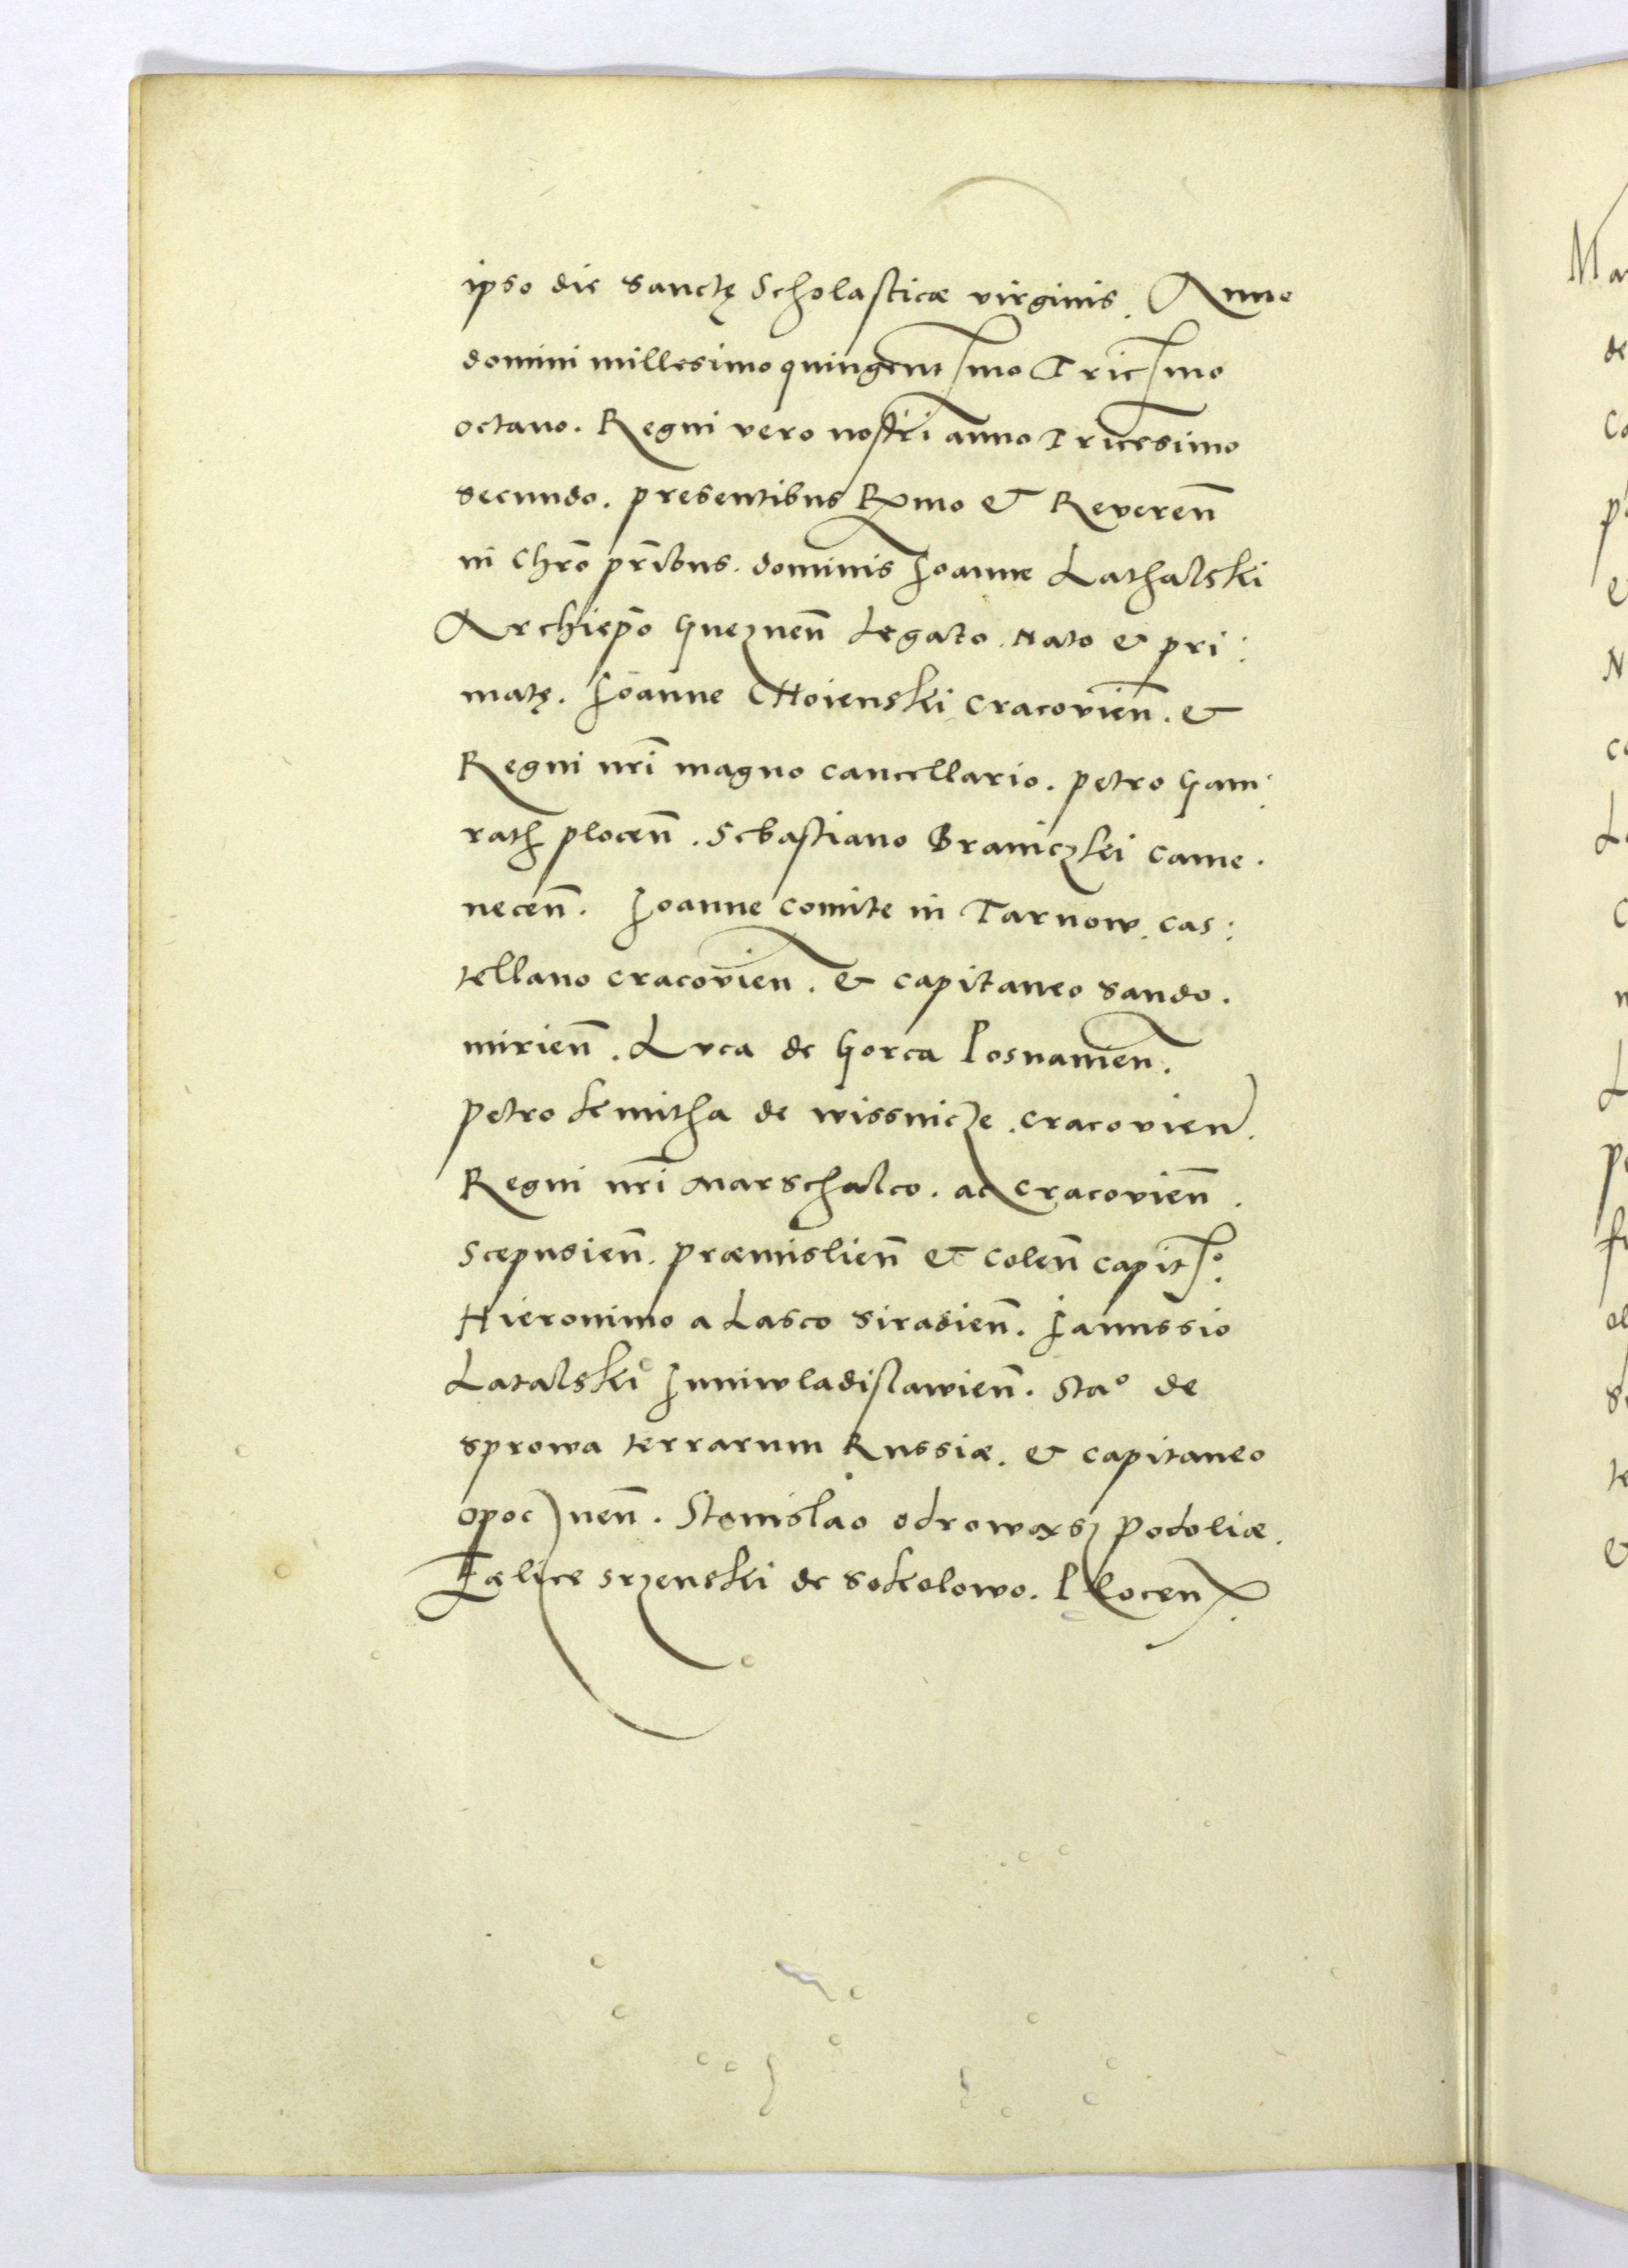 ipso die sanctę Scholasticæ virginis. Anno
domini millesimo quingentsmo Tricsmo
octauo. Regni vero nostri anno Tricesimo
secundo. presentibus Rmo & Reveren̄
in Chrō pribus. dominis Joanne Lathalski
Archiepō Gneznen̄ Legato Nato & pri:
matę. Joanne CHoienski Cracovien̄. &
Regni nr̄i magno cancellario. Petro Gam:
rath plocen̄. Sebastiano Braniczkei Came.
necen̄. Joanne Comite in Tarnow. cas:
tellano cracovien̄. & capitaneo sando.
mirien̄. Lvca de Gorca Posnanien̄.
Petro kmitha de wissnicze. cracovien.
Regni nr̄i Marschalco. ac cracovien̄.
Scepusien̄. Præmislien̄ & colen̄ capitso.
Hieronimo a Lasco siradien̄. Janussio
Latalski Juniwladislawien̄. Stao de
sprowa terrarum Russiæ. & capitaneo
opocznen̄. Stanislao odrowąsz Podoliæ.
Fælice srzenski de sokolowo. Plocen.